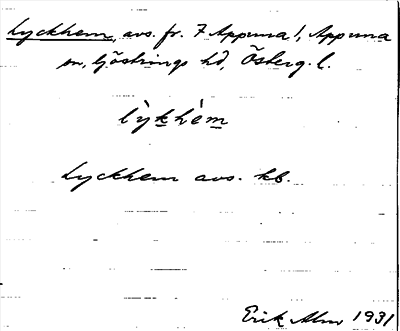 Lyckhem, avs. fr. 7 Appuna 1, Appuna
sn, Göstrings hd, Österg. l.
lỳkhèm
Lyckhem avs. kb.
Erik Alm 1931